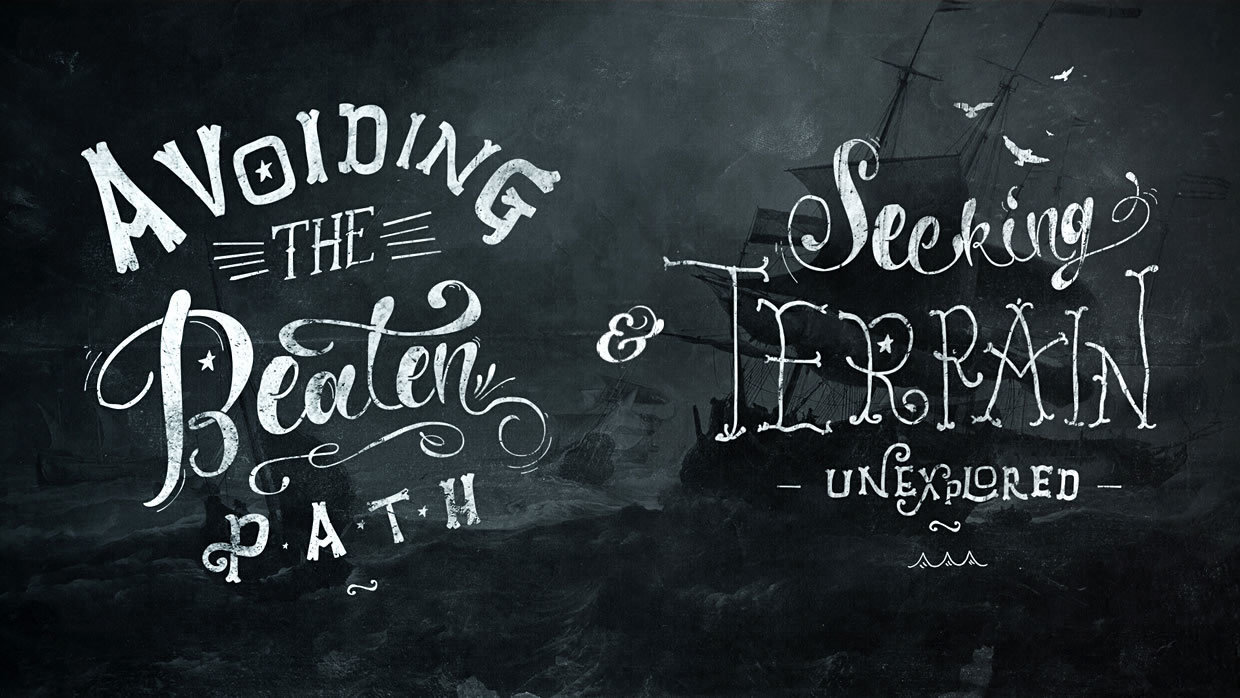 AVOIDING
THE
Beaten
P.A.T.H
&
Seeking
TERRAIN
UNEXPLORED